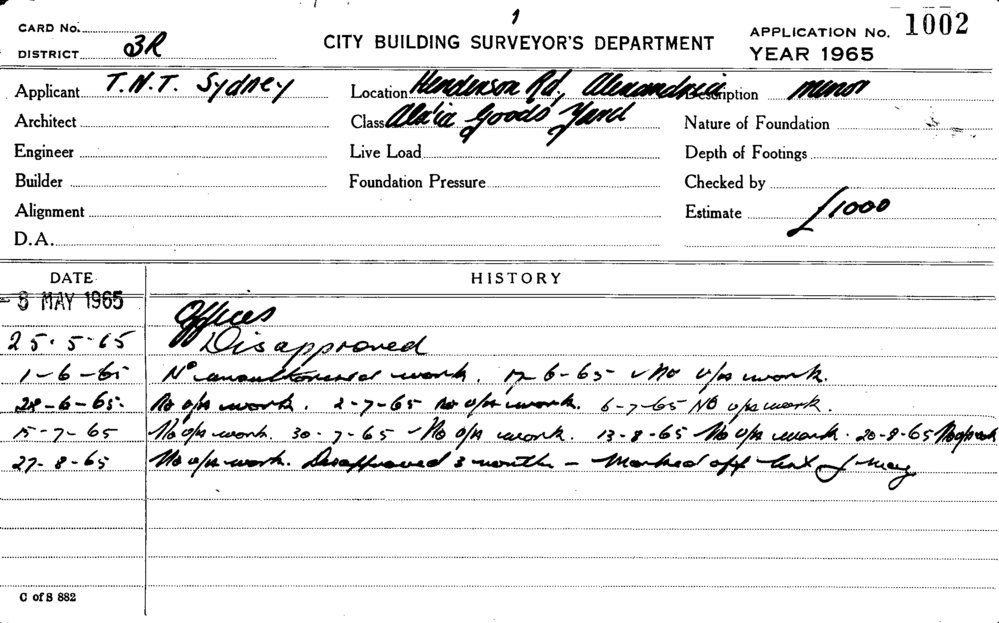 1
CARD No.
DISTRICT 3R
CITY BUILDING SURVEYOR'S DEPARTMENT
APPLICATION No. 1002
YEAR 1965
Applicant T.N.T. Sydney Location Henderson Rd, Alexandria Description minor
Architect Class Alex'ia Goods Yard Nature of Foundation
Engineer Live Load Depth of Footings
Builder Foundation Pressure Checked by
Alignment Estimate £1000
D.A.
DATE HISTORY
- 3 MAY 1965 Offices
25-5-65 Disapproved
1-6-65 No unauthorised work. 17-6-65 No u/a work.
28-6-65. No u/a work. 2-7-65 no u/a work. 6-7-65 No u/a work.
15-7-65 No u/a work. 30-7-65 No u/a work. 13-8-65 No u/a work. 20-8-65 No u/a work
27-8-65 No u/a work. Disapproved 3 months - Marked off
C of S 882